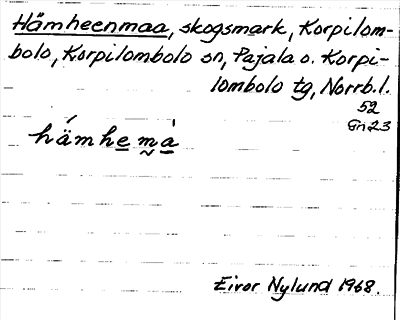 Hämheenmaa, skogsmark, Korpilom-
bolo, Korpilombolo sn, Pajala o. Korpi-
lombolo tg, Norrb. l.
52
Gn 23
hämhema
Eivor Nylund 1968.